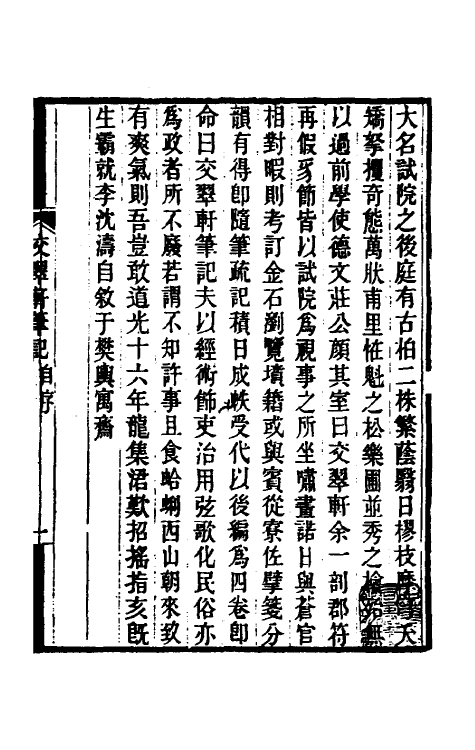 大名試院之後庭有古柏二株繁蔭翳日樛枝摩天
矯拏攫奇態萬狀甫里恠魁之松樂圃並秀之檜無
以過前學使德文莊公顏其室曰交翠軒余一剖郡符
再假豸節皆以試院爲視事之所坐嘯畫諾日與蒼官
相對暇則考訂金石瀏覽墳籍或與賓從寮佐擘箋分
韻有得卽隨筆疏記積日成帙受代以後編爲四卷卽
命曰交翠軒筆記夫以經術飾吏治用弦歌化民俗亦
爲政者所不廢若謂不知許事且食蛤蜊西山朝來致
有爽氣則吾豈敢道光十六年龍集涒歎招搖指亥旣
生霸就李沈濤自敘于樊輿寓齋
交翠軒筆記 自序 一